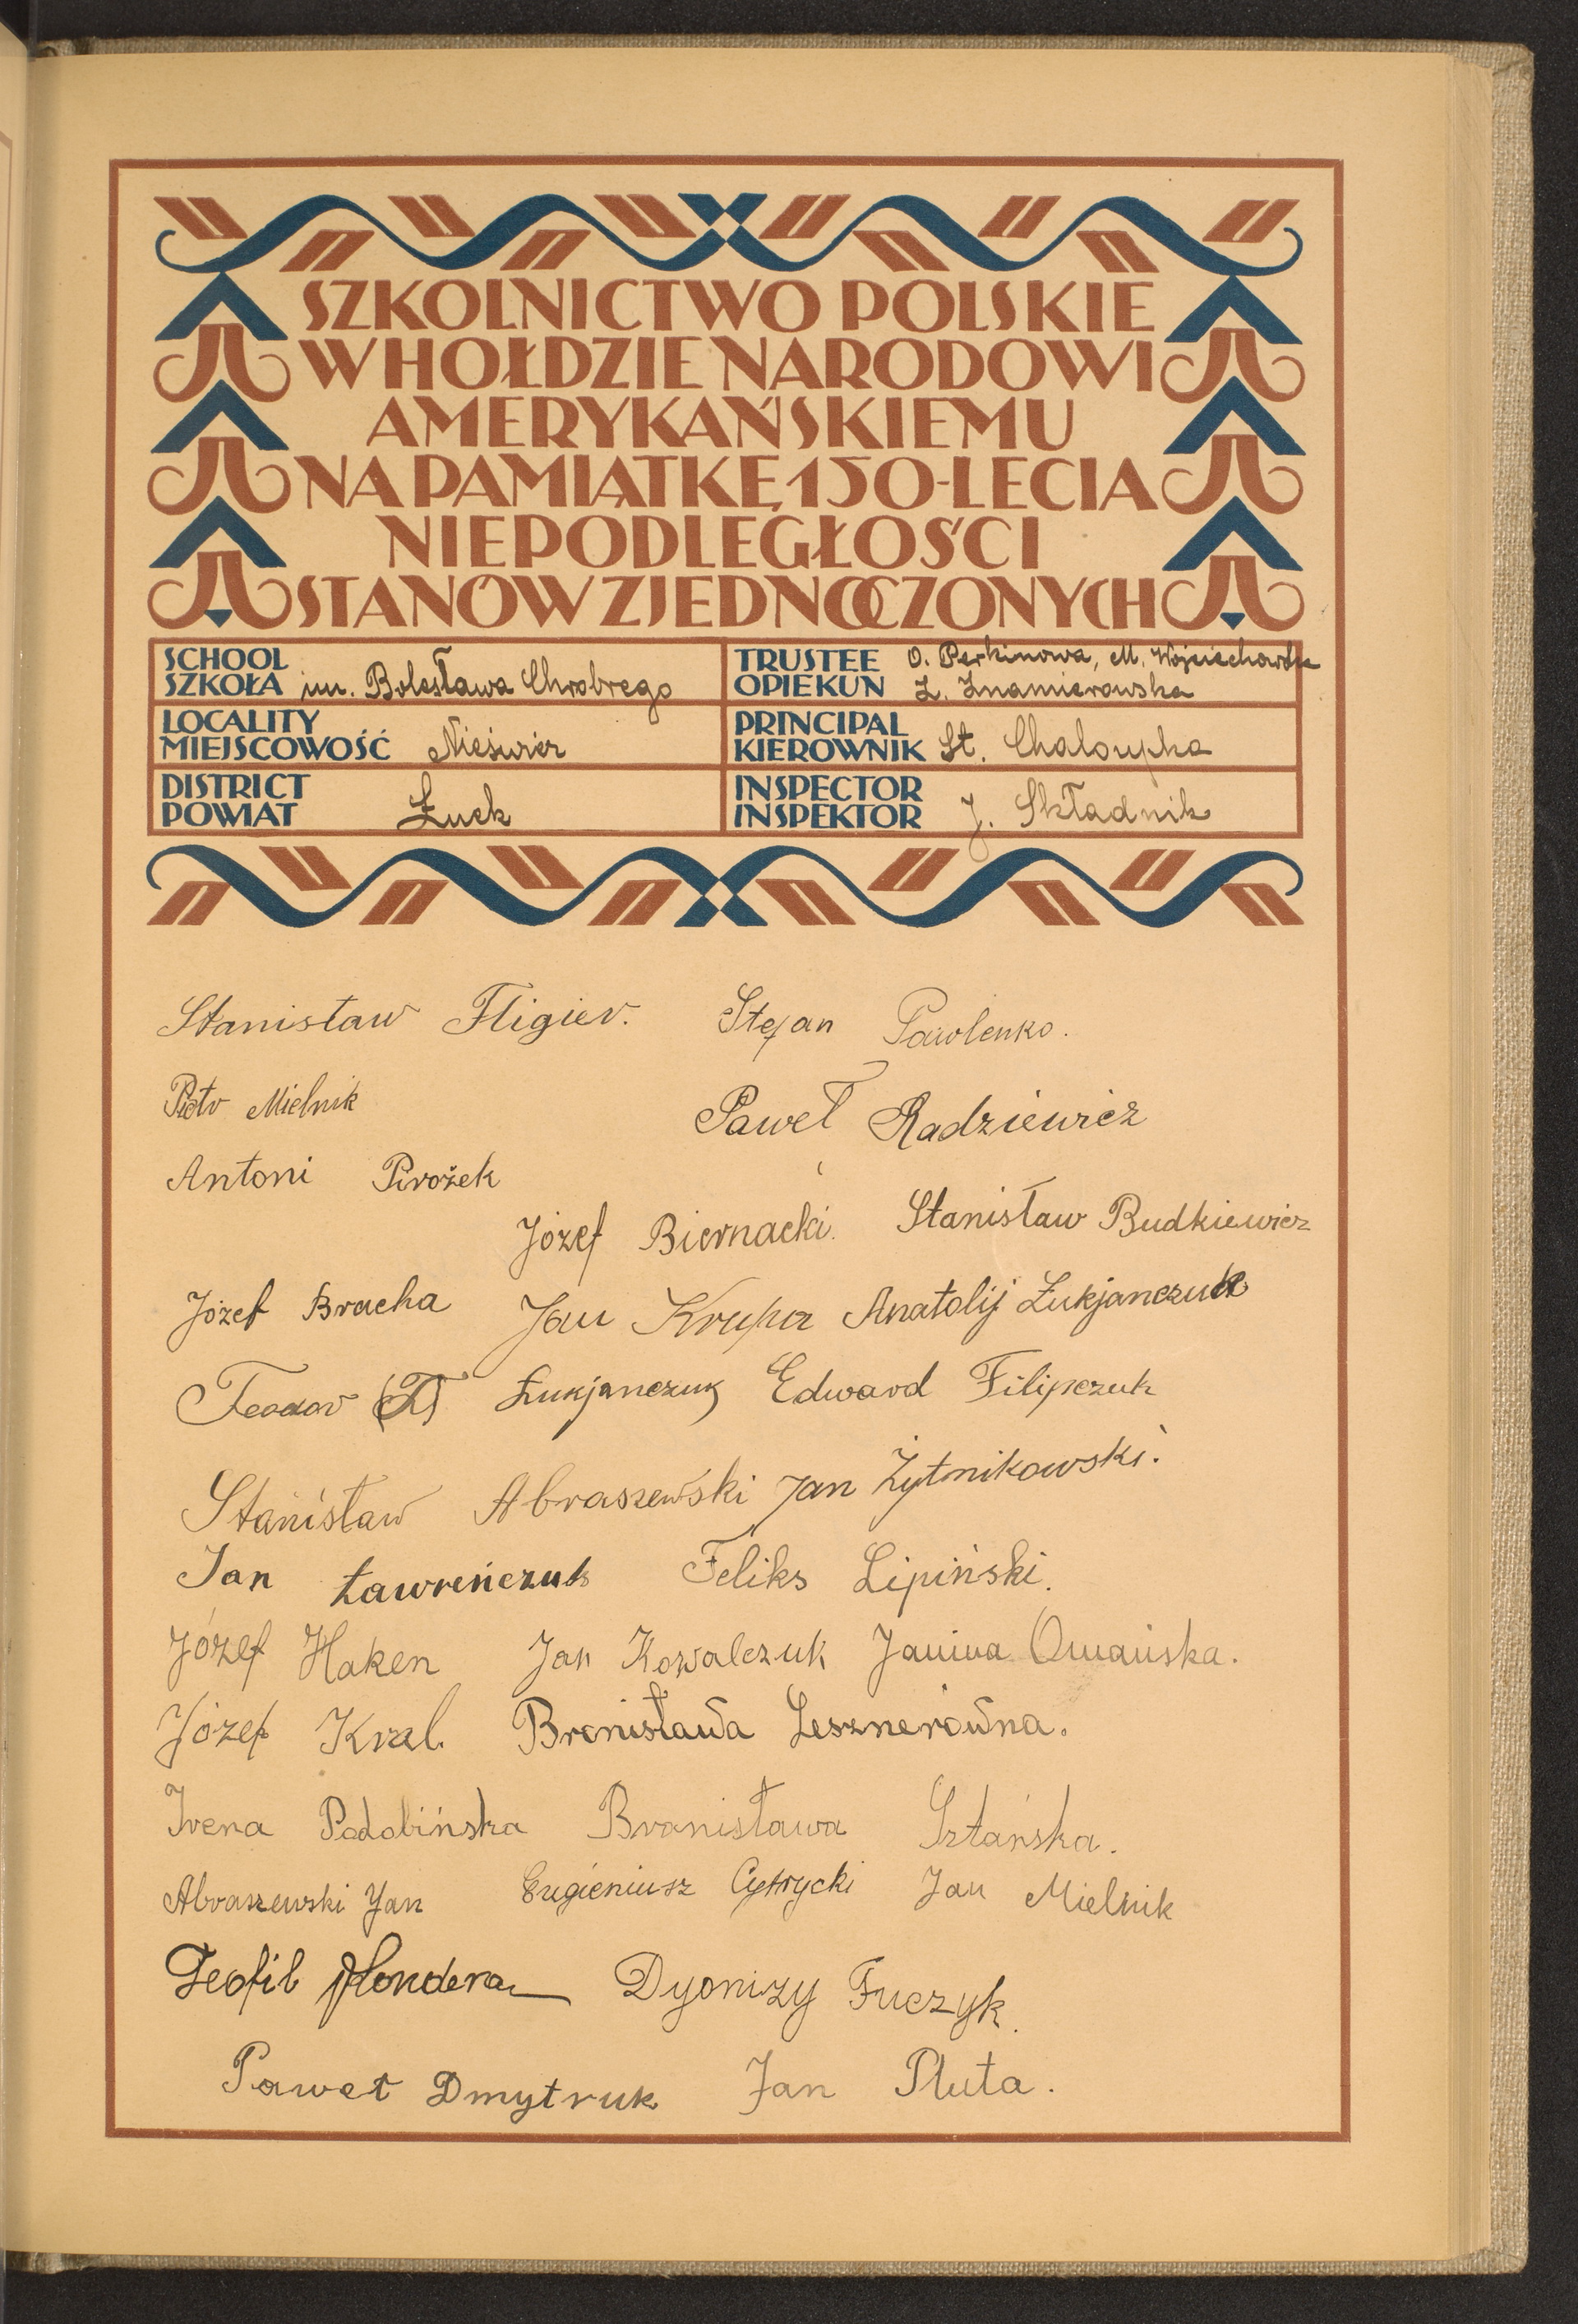 SZKOLNICTWO POLSKIE
W HOŁDZIE NARODOWI
AMERYKAŃSKIEMU
NA PAMIĄTKĘ 150-LECIA
NIEPODLEGŁOŚCI
STANÓW ZJEDNOCZONYCH
SCHOOL
SZKOŁA im. Bolesława Chrobrego
TRUSTEE O. Perkinowa, M. Wojciechowska
OPIEKUN Z. Znamierowska
LOCALITY
MIEJSCOWOŚĆ Nieświcz
PRINCIPAL
KIEROWNIK St. Chaloupka
DISTRICT
POWIAT Łuck
INSPECTOR
INSPEKTOR J. Składnik
Stanisław Fligier. Stefan Pawlenko.
Piotr Mielnik Paweł Radziewicz
Antoni Pirożek
Józef Biernacki. Stanisław Budkiewicz
Józef Bracha Jan Krupa Anatolij Łukjanczuk
Teodor (T) Łukjanczuk Edward Filipczuk
Stanisław Abraszewski Jan Żytnikowski.
Jan Ławreńczuk Feliks Lipiński.
Józef Haken Jan Kowalczuk Janina Omańska.
Józef Kral. Bronisława Lesznerówna.
Irena Podobińska Bronisława Sztańska.
Abraszewski Jan Eugieniusz Cytrycki Jan Mielnik
Teofil Dyonizy Fuczyk.
Paweł Dmytruk Jan Pluta.